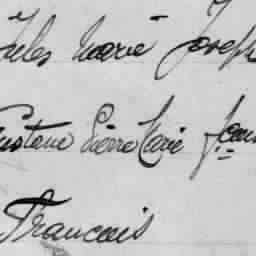 Jules Marie Joseph
Gustave Pierre Marie Jean
Francois